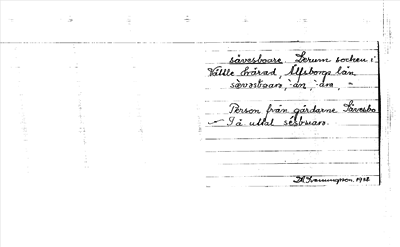 såvesboare Lerum socken i
Vättle härad, Älfsborgs län
sævəsboarə, -ən, -ara, -
Person från gårdarne Sävesbo
- Få uttal sésboarə.
1928